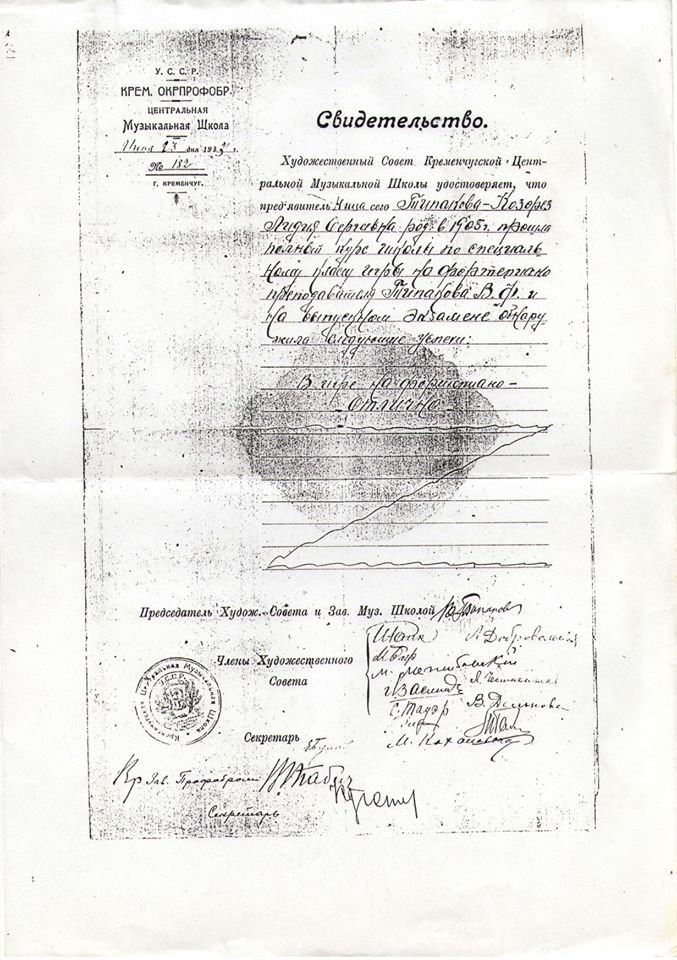 У. С. С. Р.
КРЕМ. ОКРПРОФОБР.
ЦЕНТРАЛЬНАЯ
Музыкальная Школа
Июня 23 дня 192
№ 182
Г. КРЕМЕНЧУГ.
Свидетельство.
Художественный Совет Кременчугской Цент-
ральной Музыкальной Школы удостоверяет, что
пред'явитель ница сего Типакова-Козорез
Лидия Сергеевна род. в 1905 г. прошла
полный курс школы по специаль-
ному классу игры на фортепиано
преподавателя Типакова В. Ф. и
на выпускном экзамене обнару
жила следующие успехи:
В игре на фортепиано—
— Отлично —
Председатель Худож. Совета и Зав. Муз. Школой
Члены Художественного
Совета
Секретарь
Кременчугская Центральная Музыкальная Школа
У.С.С.Р.
Зав. Профобром
Секретарь